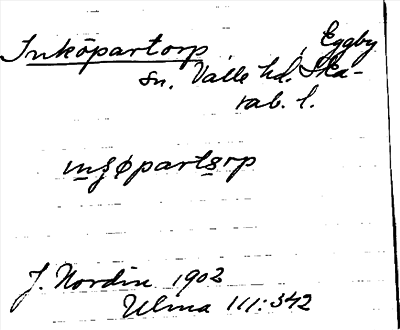 Inköpartorp, Eggby
sn. Valle hd. Ska-
rab. l.
ɪnʒøpartɔrp
J. Nordin 1902
Ulma 111:342